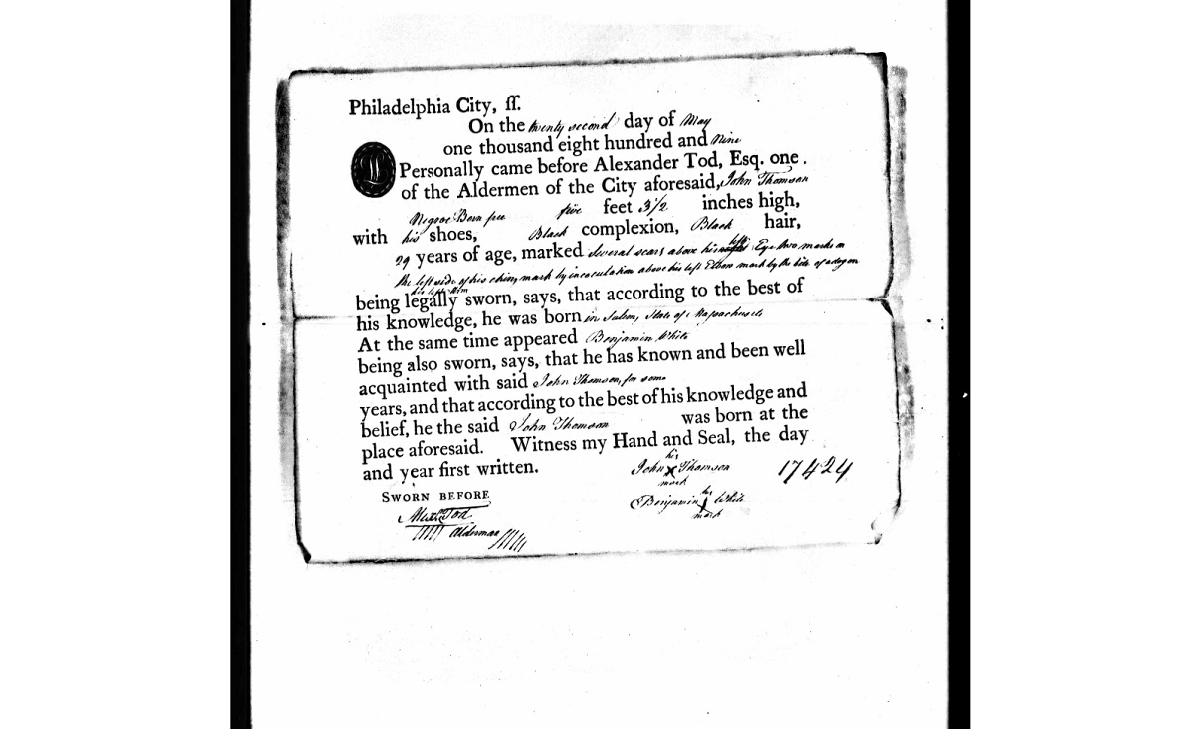 Philadelphia City, ſſ.
On the twenty second day of May
one thousand eight hundred and Nine
Personally came before Alexander Tod, Esq. one
of the Aldermen of the City aforesaid, John Thomson
Negroe Born free five feet 3 1/2 inches high,
with his shoes, Black complexion, Black hair,
29 years of age, marked several scars above his left Eye two marks on
the left side of his chin, mark by inocculation above his left Elbow mark by the bite of a dog on
his left Arm
being legally sworn, says, that according to the best of
his knowledge, he was born in Salem, State of Massachusets
At the same time appeared Benjamin White
being also sworn, says, that he has known and been well
acquainted with said John Thomson, for some
years, and that according to the best of his knowledge and
belief, he the said John Thomson was born at the
place aforesaid. Witness my Hand and Seal, the day
and year first written.
his
John X Thomson 17424
mark
SWORN BEFORE
his
Benjamin White
mark
Alex Tod
Alderman